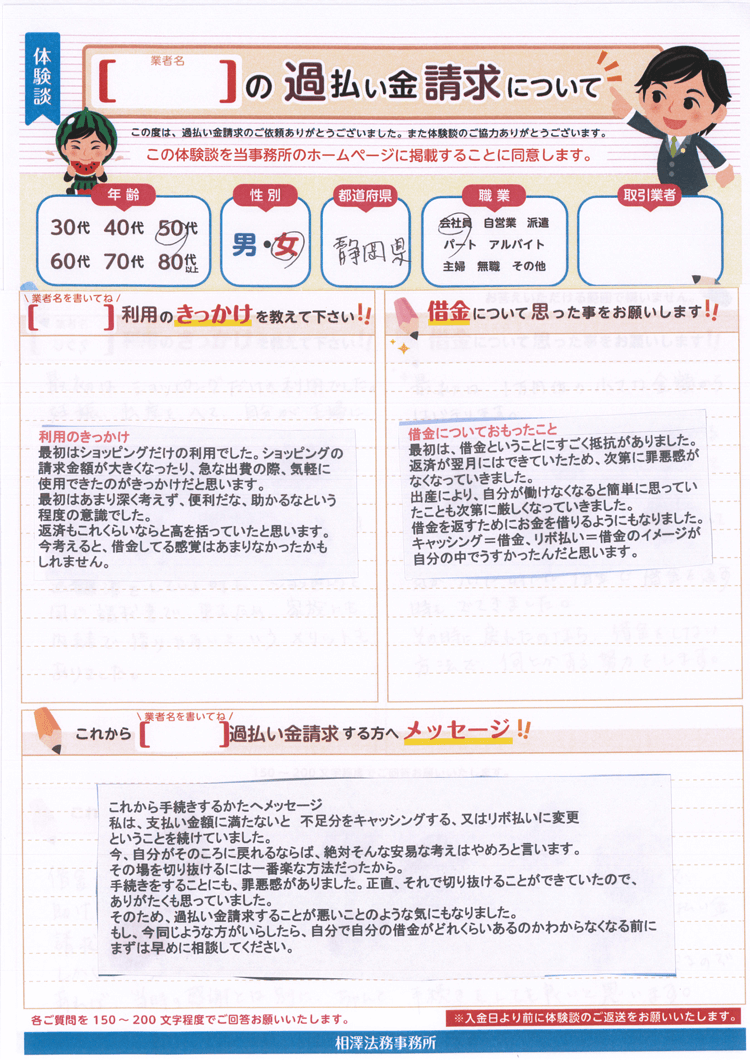 体験談
業者名
[ ]の過払い金請求について
この度は、過払い金請求のご依頼ありがとうございました。また体験談のご協力ありがとうございます。
この体験談を当事務所のホームページに掲載することに同意します。
年齢
30代 40代 50代
60代 70代 80代以上
性別
男・女
都道府県
静岡県
職業
会社員 自営業 派遣
パート アルバイト
主婦 無職 その他
取引業者
\ 業者名を書いてね /
[ ]利用のきっかけを教えて下さい!!
利用のきっかけ
最初はショッピングだけの利用でした。ショッピングの
請求金額が大きくなったり、急な出費の際、気軽に
使用できたのがきっかけだと思います。
最初はあまり深く考えず、便利だな、助かるなという
程度の意識でした。
返済もこれくらいならと高を括っていたと思います。
今考えると、借金してる感覚はあまりなかったかも
しれません。
借金について思った事をお願いします!!
借金についておもったこと
最初は、借金ということにすごく抵抗がありました。
返済が翌月にはできていたため、次第に罪悪感が
なくなっていきました。
出産により、自分が働けなくなると簡単に思ってい
たことも次第に厳しくなっていきました。
借金を返すためにお金を借りるようにもなりました。
キャッシング=借金、リボ払い=借金のイメージが
自分の中でうすかったんだと思います。
\ 業者名を書いてね /
これから[ ]過払い金請求する方へメッセージ!!
これから手続きするかたへメッセージ
私は、支払い金額に満たないと　不足分をキャッシングする、又はリボ払いに変更
ということを続けていました。
今、自分がそのころに戻れるならば、絶対そんな安易な考えはやめろと言います。
その場を切り抜けるには一番楽な方法だったから。
手続きをすることにも、罪悪感がありました。正直、それで切り抜けることができていたので、
ありがたくも思っていました。
そのため、過払い金請求することが悪いことのような気にもなりました。
もし、今同じような方がいらしたら、自分で自分の借金がどれくらいあるのかわからなくなる前に
まずは早めに相談してください。
各ご質問を150〜200文字程度でご回答お願いいたします。
※入金日より前に体験談のご返送をお願いいたします。
相澤法務事務所